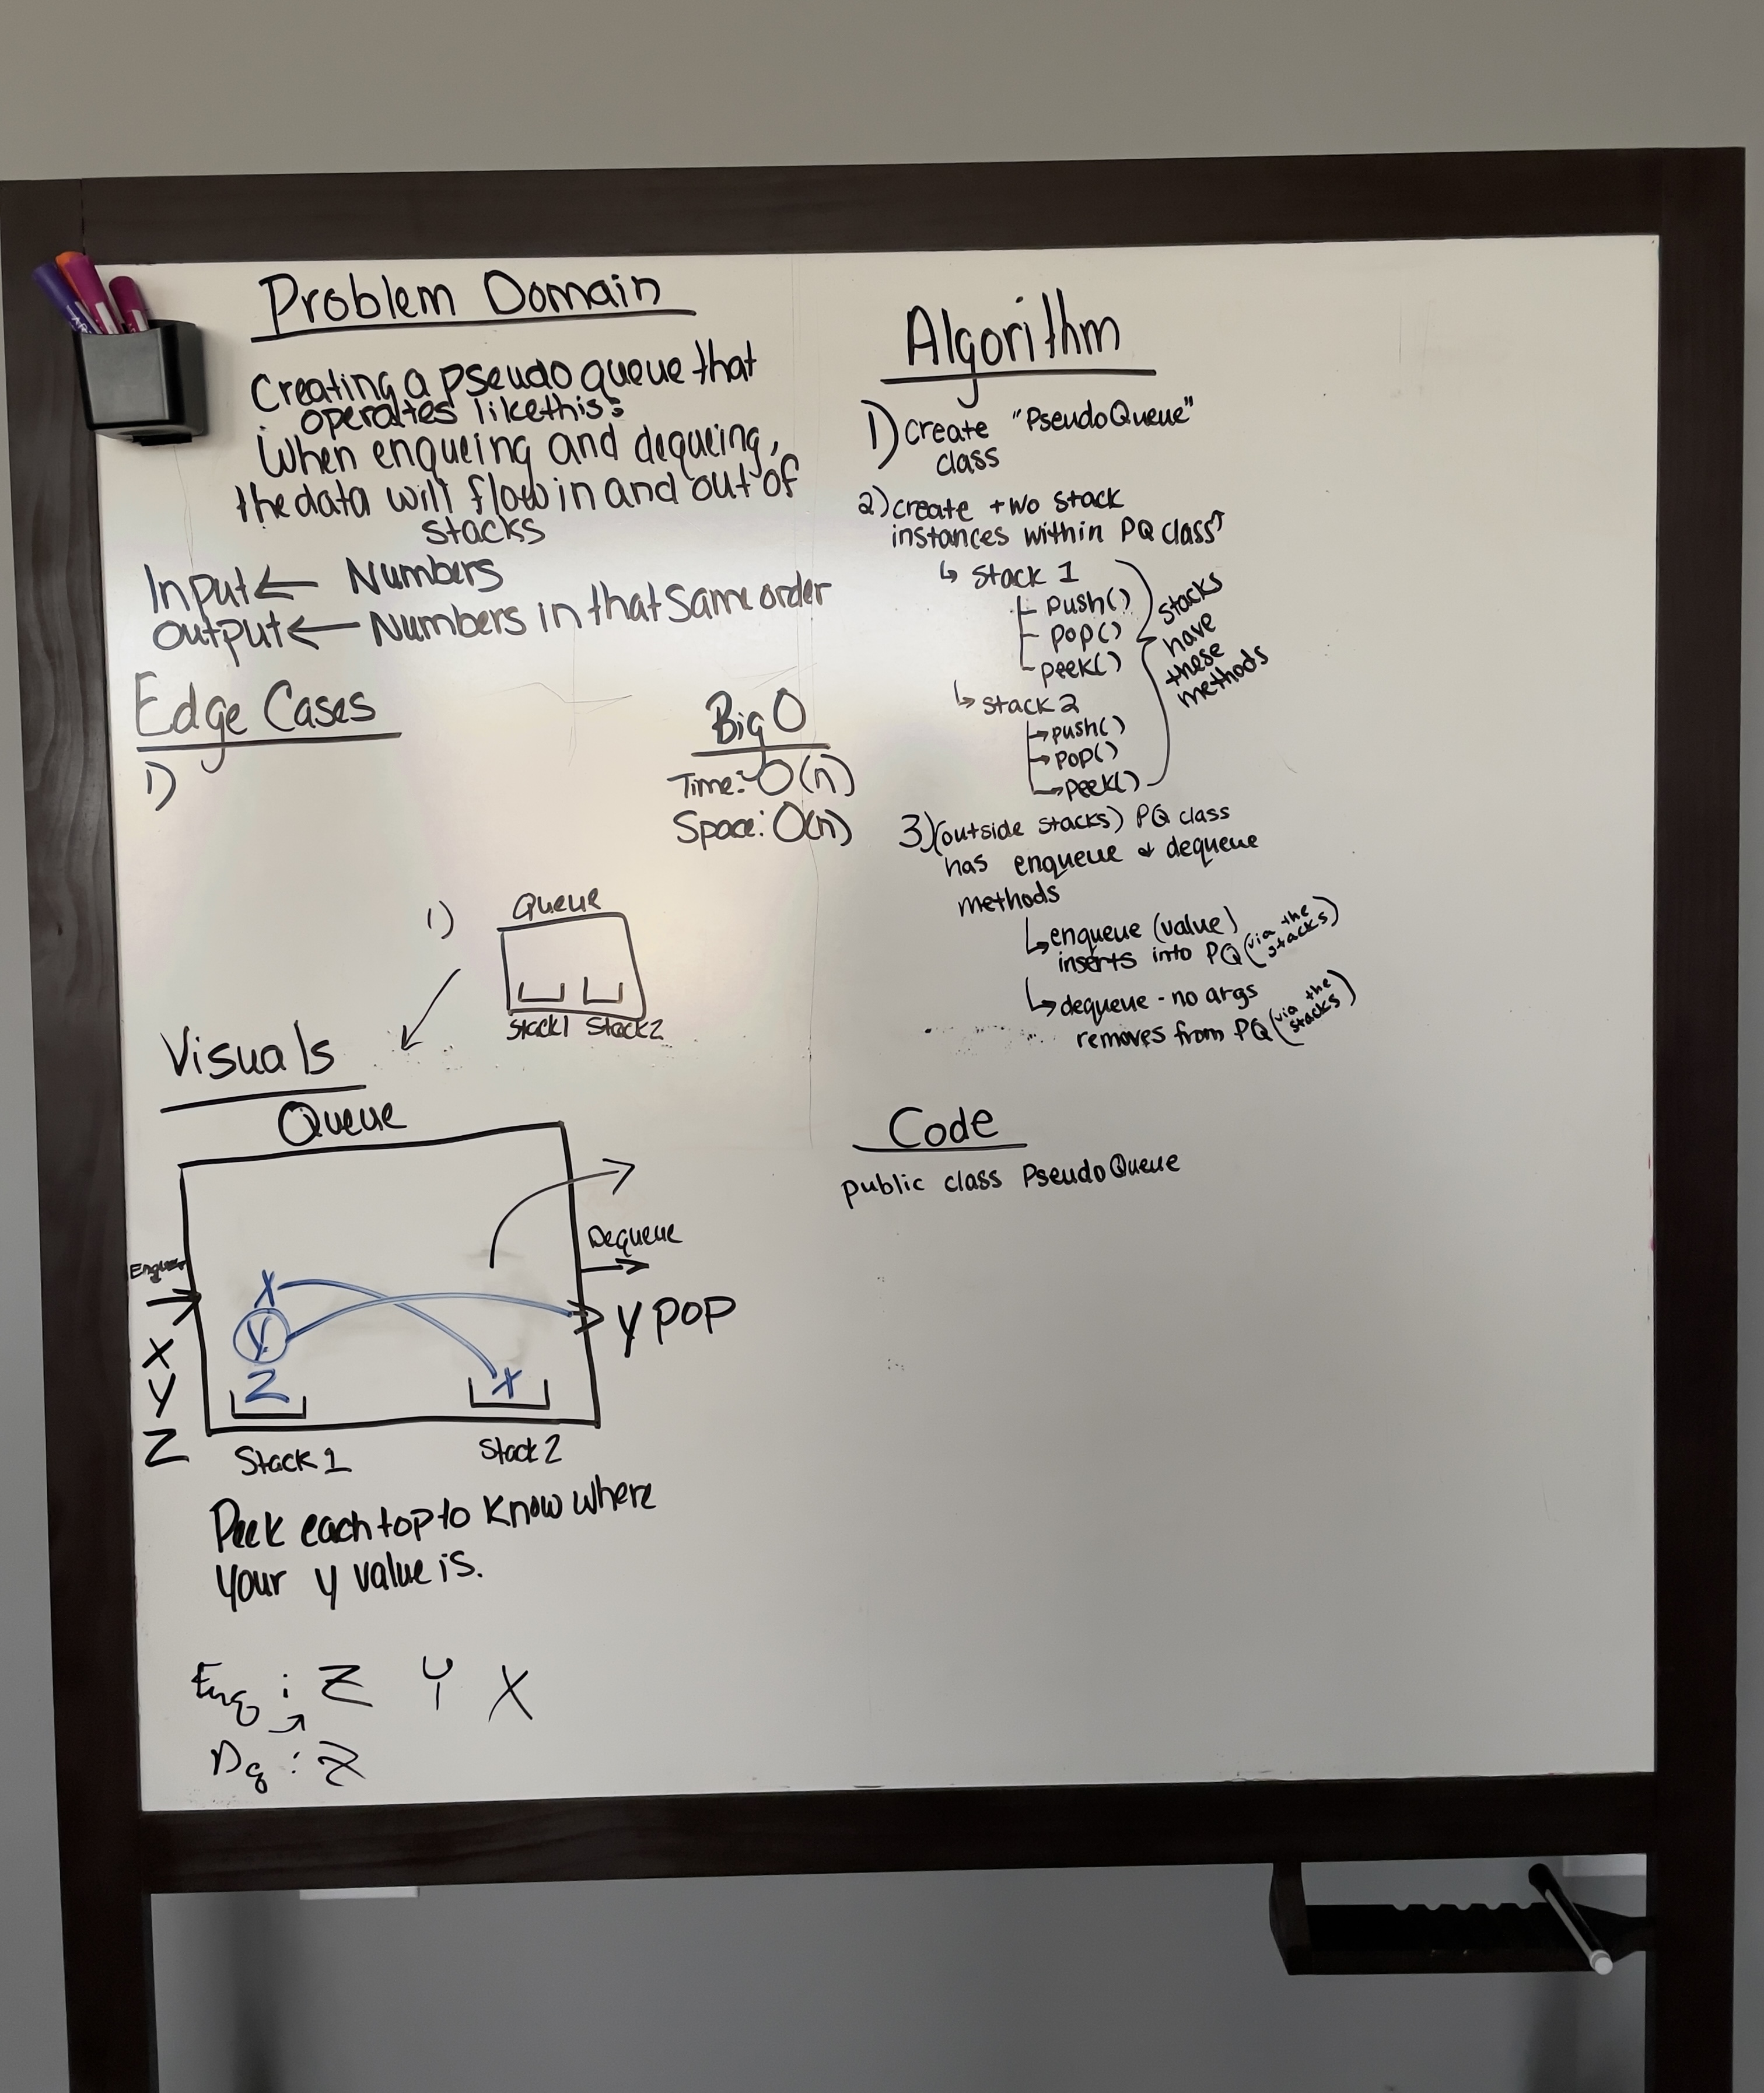 Problem Domain
Creating a pseudo queue that
operates like this:
When enqueing and dequeing,
the data will flow in and out of
stacks
Input ← Numbers
output ← Numbers in that same order
Edge Cases
1)
Big O
Time: O(n)
Space: O(n)
1)
Queue
Stack1 Stack2
Visuals
Queue
Dequeue
X
Y
Z
X
Y
Z
X
y pop
Stack 1
Stack 2
Peek each top to know where
your y value is.
Enq : Z Y X
Dq : Z
Algorithm
1) create "PseudoQueue"
class
2) create two stack
instances within PQ class↑
↳ Stack 1
push()
pop()
peek()
↳ stack 2
→push()
→pop()
→peek()
stacks
have
these
methods
3)(outside stacks) PQ class
has enqueue & dequeue
methods
↳enqueue (value)
inserts into PQ (via the
stacks)
↳dequeue - no args
removes from PQ (via the
stacks)
Code
public class PseudoQueue